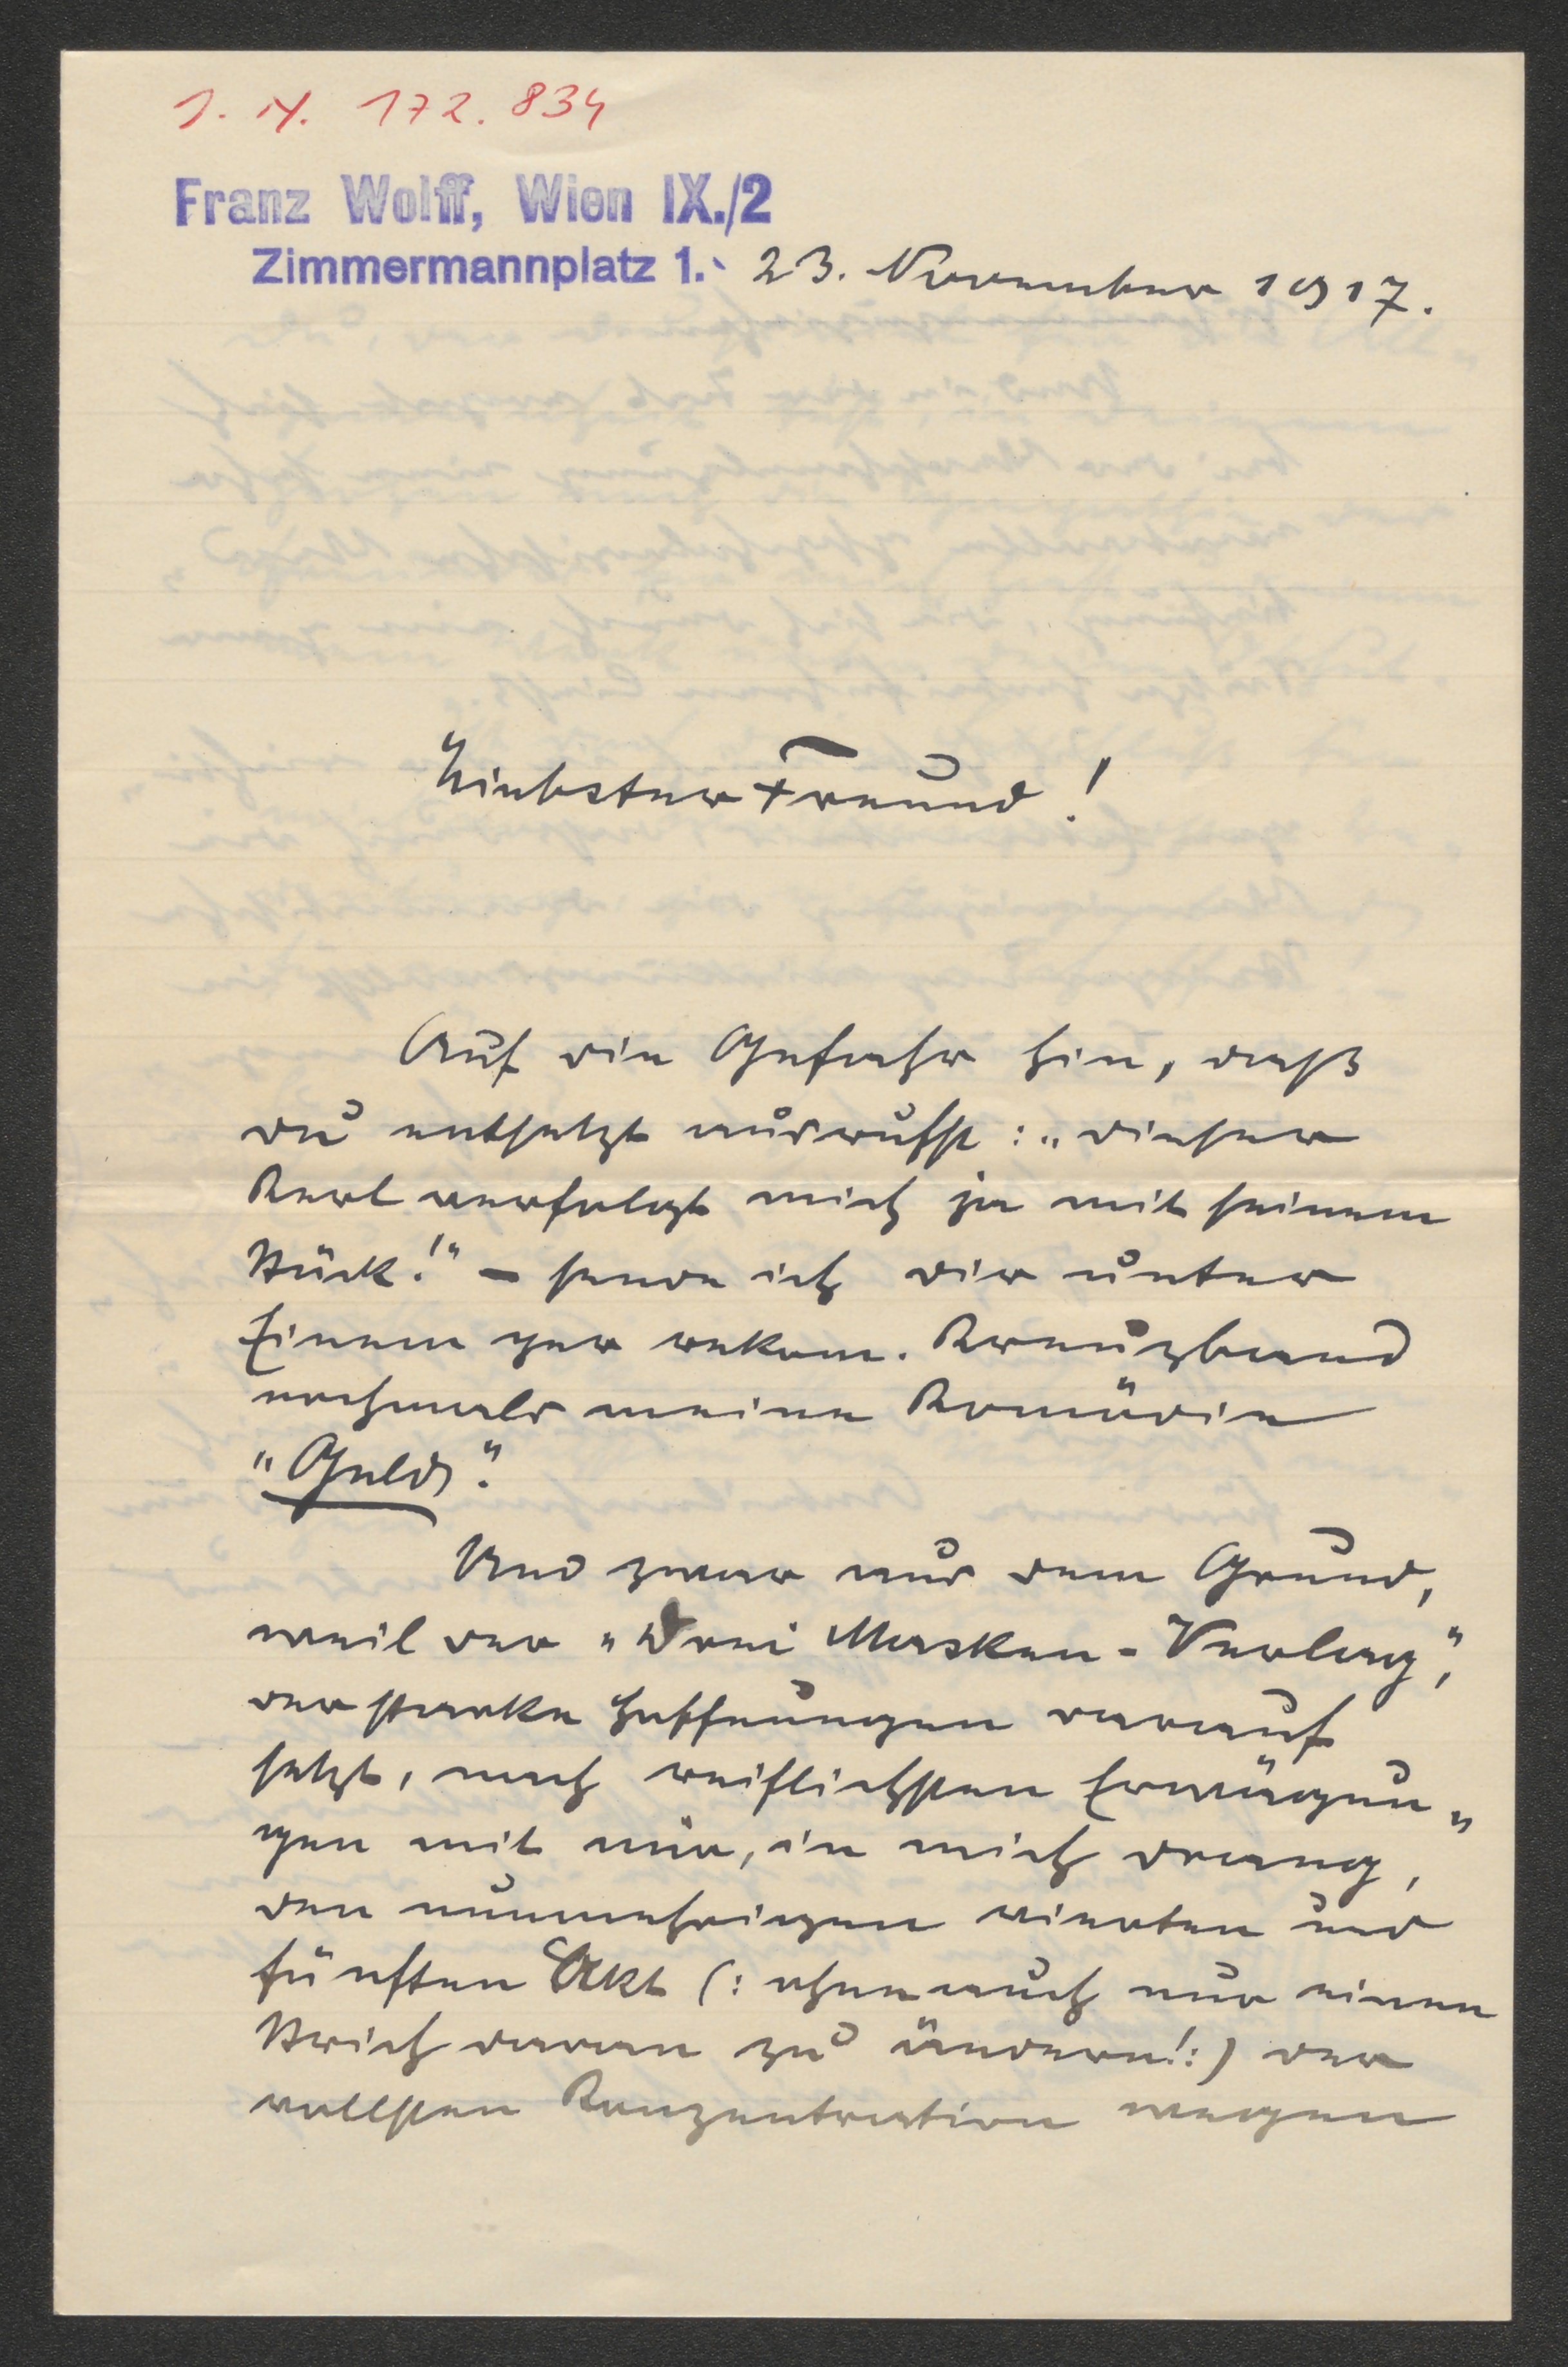 I. N. 172.834
Franz Wolff, Wien IX./2
Zimmermannplatz 1. 23. November 1917.
Liebster Freund!
Auf die Gefahr hin, daß
du entsetzt ausrufst: „dieser
Kerl verfolgt mich ja mit seinem
Stück!" – sende ich dir unter
Einem per rekom. Kreuzband
nochmals meine Komödie
"Geld".
Und zwar aus dem Grund,
weil der „Drei Masken-Verlag",
der starke Hoffnungen darauf
setzt, nach reiflichsten Erwägun„
gen mit mir, in mich drang,
den nunmehrigen vierten und
fünften Akt (: ohne auch nur einen
Strich daran zu ändern!:) der
vollsten Konzentration wegen